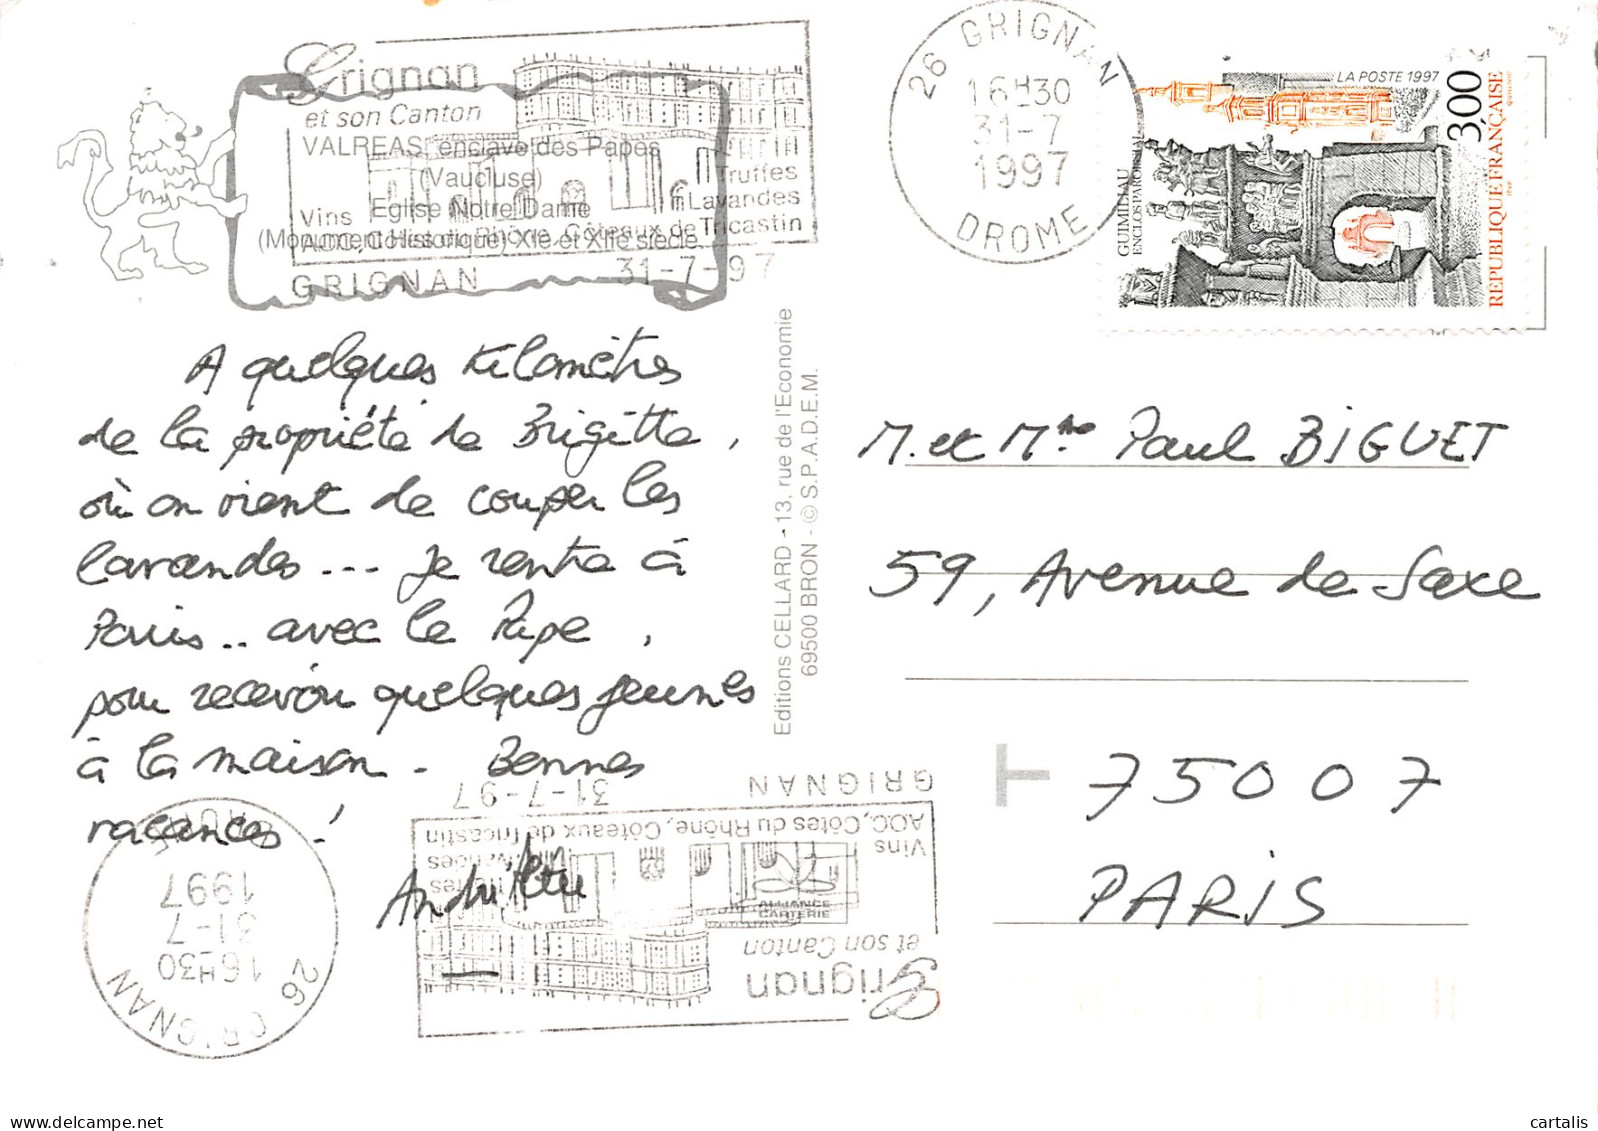 Grignan
et son Canton
VALREAS, enclave des Papes
(Vaucluse)
Eglise Notre Dame
(Monument Historique) XIe et XIIe siècle
Truffes
Lavandes
Vins
AOC, Côtes du Rhône, Côteaux de Tricastin
GRIGNAN 31-7-97
26 GRIGNAN
16H30
31-7
1997
DROME
LA POSTE 1997
3,00
REPUBLIQUE FRANÇAISE
GUIMILIAU
ENCLOS PAROISSIAL
A quelques kilomètres
de la propriété de Brigitte,
où on vient de couper les
lavandes... Je rentre à
Paris.. avec le Pape,
pour recevoir quelques jeunes
à la maison. Bonnes
vacances !
Editions CELLARD - 13, rue de l'Economie
69500 BRON - © S.P.A.D.E.M.
M. et Mme Paul BIGUET
59, Avenue de Saxe
75007
PARIS
GRIGNAN 31-7-97
Vins
AOC, Côtes du Rhône, Côteaux de Tricastin
ALLIANCE
CARTERIE
et son Canton
Grignan
26 GRIGNAN
16H30
31-7
1997
DROME
cartalis